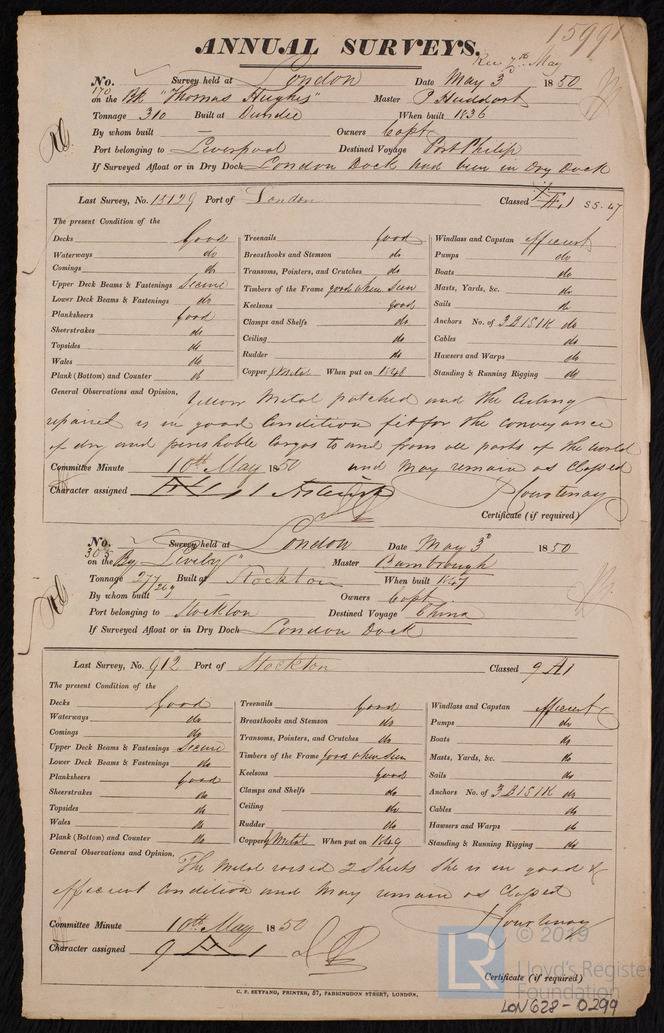 15991
ANNUAL SURVEYS.
Rec 7th May
No. 170 Survey held at London Date May 3d 1850
on the Bk "Thomas Hughes" Master P Huddart
Tonnage 310 Built at Dundee When built 1836
By whom built — Owners Capt
Port belonging to Liverpool Destined Voyage Port Philip
If Surveyed Afloat or in Dry Dock London Dock had been in Dry Dock
Last Survey, No. 15129 Port of London Classed Æ1 SS.47
The present Condition of the
Decks Good Treenails good Windlass and Capstan efficient
Waterways do Breasthooks and Stemson do Pumps do
Comings do Transoms, Pointers, and Crutches do Boats do
Upper Deck Beams & Fastenings Secure Timbers of the Frame good when seen Masts, Yards, &c. do
Lower Deck Beams & Fastenings do Keelsons good Sails do
Planksheers good Clamps and Shelfs do Anchors No. of 3B1S1K do
Sheerstrakes do Ceiling do Cables do
Topsides do Rudder do Hawsers and Warps do
Wales do Copper Y Metal When put on 1848 Standing & Running Rigging do
Plank (Bottom) and Counter do
General Observations and Opinion, Yellow Metal patched and the Caulking
repaired is in good Condition fit for the conveyance
of dry and perishable Cargos to and from all parts of the World
and May remain as Classed
Committee Minute 10th May 1850
Character assigned Æ 1 Asterisk Courtenay
Certificate (if required)
No. 305 Survey held at London Date May 3d 1850
on the Bg Master Bambrough
Tonnage 277/269 Built at Stockton When built 1847
By whom built — Owners Capt
Port belonging to Stockton Destined Voyage China
If Surveyed Afloat or in Dry Dock London Dock
Last Survey, No. 912 Port of Stockton Classed 9 A1
The present Condition of the
Decks Good Treenails Good Windlass and Capstan efficient
Waterways do Breasthooks and Stemson do Pumps do
Comings do Transoms, Pointers, and Crutches do Boats do
Upper Deck Beams & Fastenings Secure Timbers of the Frame good when seen Masts, Yards, &c. do
Lower Deck Beams & Fastenings do Keelsons good Sails do
Planksheers good Clamps and Shelfs do Anchors No. of 3B1S1K do
Sheerstrakes do Ceiling do Cables do
Topsides do Rudder do Hawsers and Warps do
Wales do Copper Y Metal When put on 1849 Standing & Running Rigging do
Plank (Bottom) and Counter do
General Observations and Opinion, The Metal raised 2 Sheets She is in good &
efficient Condition and May remain as Classed
Courtenay
Committee Minute 10th May 1850
Character assigned 9 A 1
Certificate (if required)
C. F. SEYFANG, PRINTER, 57, FARRINGDON STREET, LONDON.
LR © 2019
Lloyd's Register
Foundation
LON628-0299